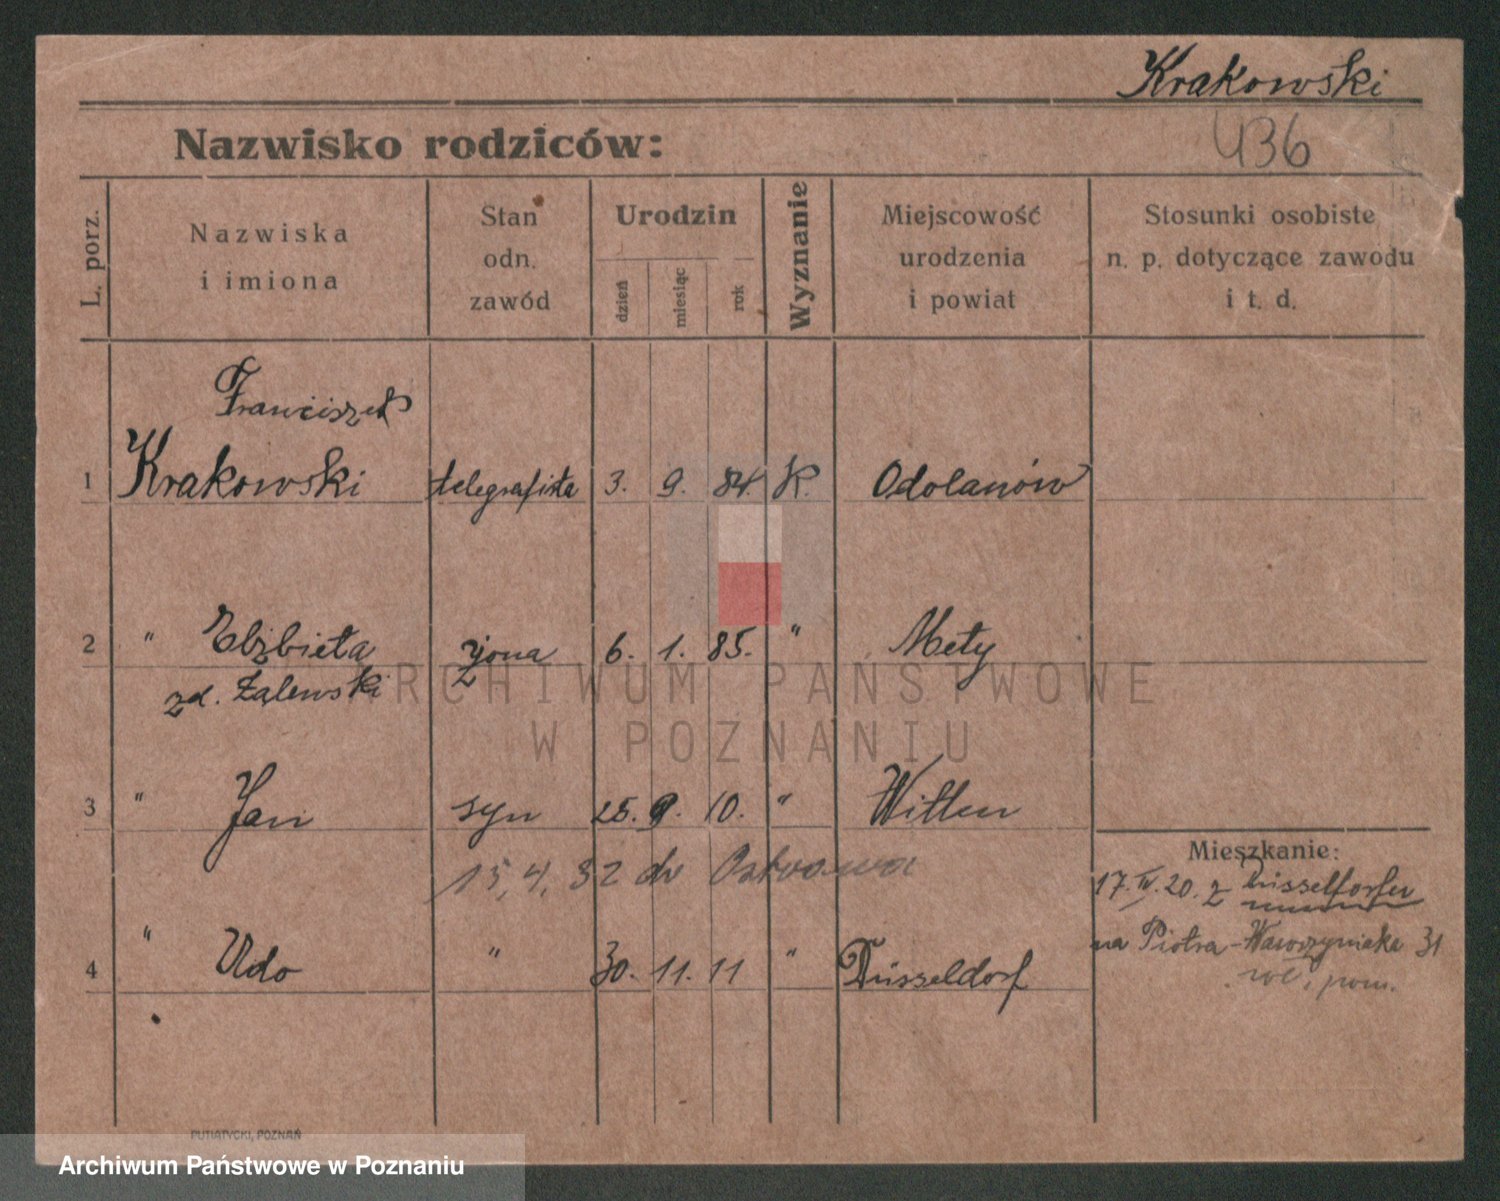 Krakowski
Nazwisko rodziców:
436
L. porz.
Nazwiska
i imiona
Stan
odn.
zawód
Urodzin
dzień
miesiąc
rok
Wyznanie
Miejscowość
urodzenia
i powiat
Stosunki osobiste
n. p. dotyczące zawodu
i t. d.
Franciszek
1 Krakowski telegrafista 3. 9. 84. K. Odolanów
2 " Elżbieta żona 6. 1. 85. " Mety
zd. Zalewski
ARCHIWUM PAŃSTWOWE
W POZNANIU
3 " Jan syn 25. 9. 10. " Witten
15,4,32 do Ostrowa
Mieszkanie:
17.IV.20. z Düsseldorfu
na Piotra-Wawrzyniaka 31
4 " Udo " 30. 11. 11 " Düsseldorf
PUTIATYCKI, POZNAŃ
Archiwum Państwowe w Poznaniu